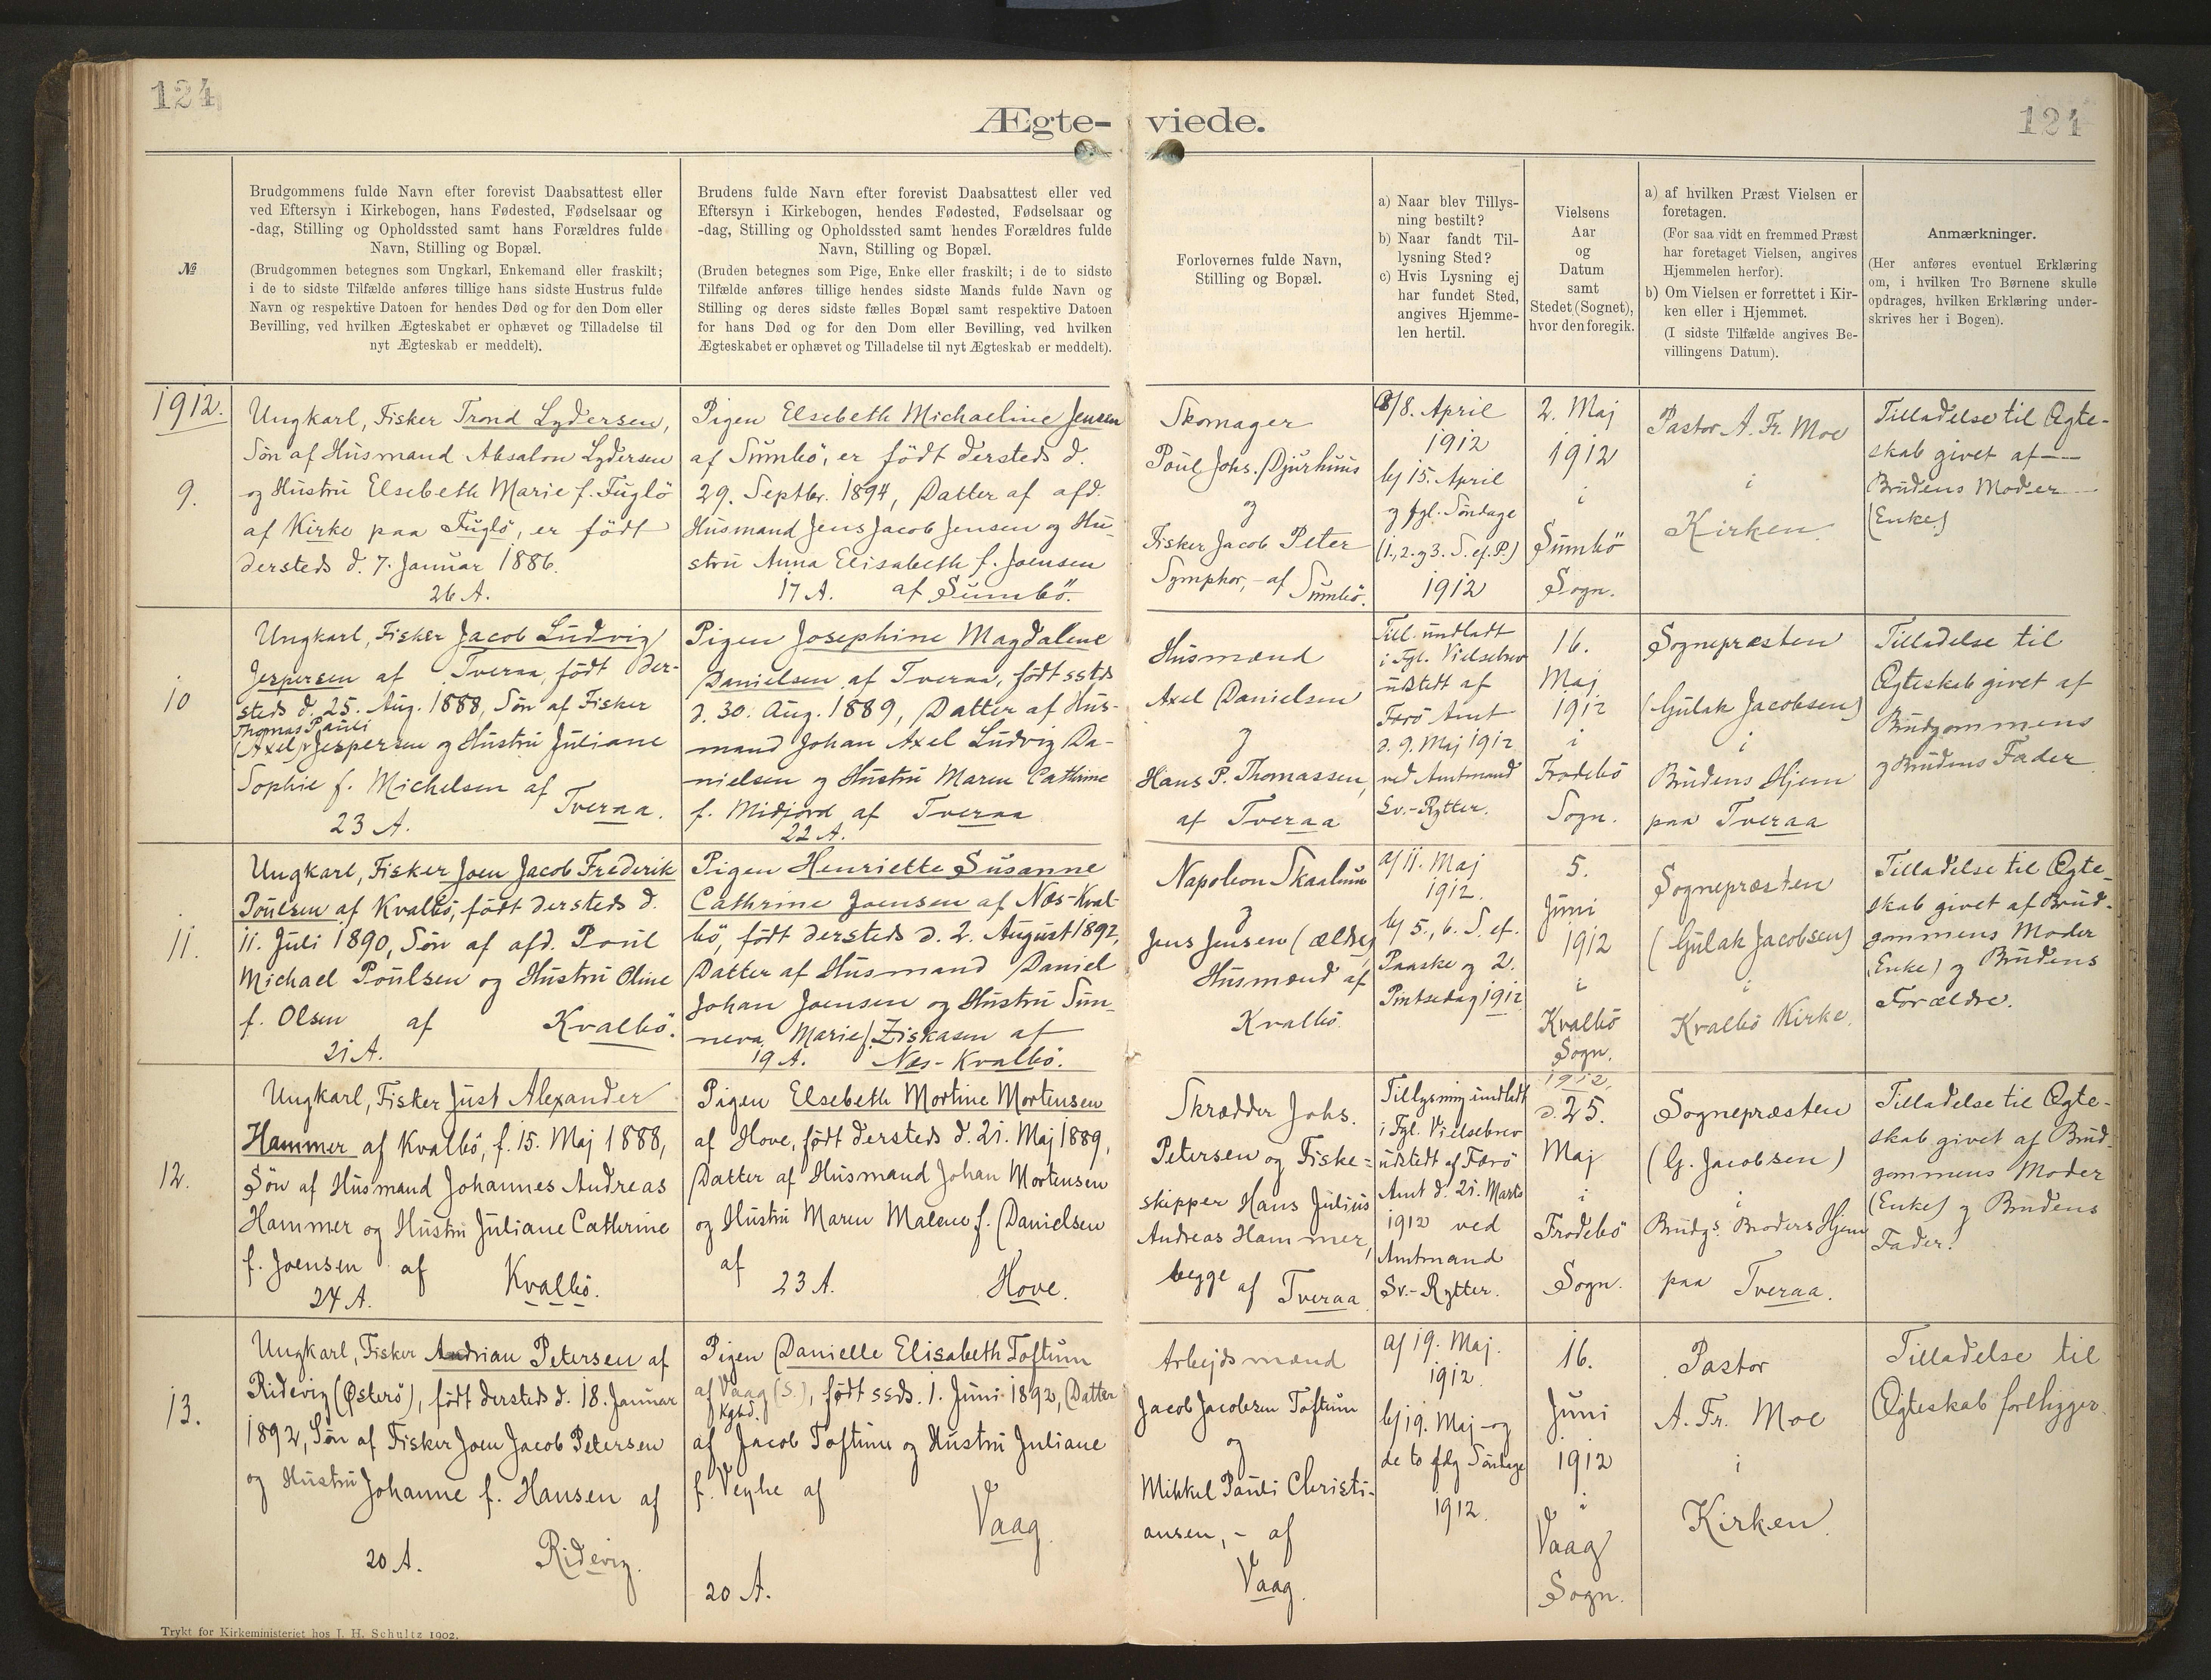 124
124
Ægte- viede.
№
Brudgommens fulde Navn efter forevist Daabsattest eller
ved Eftersyn i Kirkebogen, hans Fødested, Fødselsaar og
-dag, Stilling og Opholdssted samt hans Forældres fulde
Navn, Stilling og Bopæl.
(Brudgommen betegnes som Ungkarl, Enkemand eller fraskilt;
i de to sidste Tilfælde anføres tillige hans sidste Hustrus fulde
Navn og respektive Datoen for hendes Død og for den Dom eller
Bevilling, ved hvilken Ægteskabet er ophævet og Tilladelse til
nyt Ægteskab er meddelt).
Brudens fulde Navn efter forevist Daabsattest eller ved
Eftersyn i Kirkebogen, hendes Fødested, Fødselsaar og
-dag, Stilling og Opholdssted samt hendes Forældres fulde
Navn, Stilling og Bopæl.
(Bruden betegnes som Pige, Enke eller fraskilt; i de to sidste
Tilfælde anføres tillige hendes sidste Mands fulde Navn og
Stilling og deres sidste fælles Bopæl samt respektive Datoen
for hans Død og for den Dom eller Bevilling, ved hvilken
Ægteskabet er ophævet og Tilladelse til nyt Ægteskab er meddelt).
Forlovernes fulde Navn,
Stilling og Bopæl.
a) Naar blev Tillys-
ning bestilt?
b) Naar fandt Til-
lysning Sted?
c) Hvis Lysning ej
har fundet Sted,
angives Hjemme-
len hertil.
Vielsens
Aar
og
Datum
samt
Stedet (Sognet),
hvor den foregik.
a) af hvilken Præst Vielsen er
foretagen.
(For saa vidt en fremmed Præst
har foretaget Vielsen, angives
Hjemmelen herfor).
b) Om Vielsen er forrettet i Kir-
ken eller i Hjemmet.
(I sidste Tilfælde angives Be-
villingens Datum).
Anmærkninger.
(Her anføres eventuel Erklæring
om, i hvilken Tro Børnene skulle
opdrages, hvilken Erklæring under-
skrives her i Bogen).
1912.
9.
Ungkarl, Fisker Trond Lydersen,
Søn af Husmand Absalon Lydersen
og Hustru Elsebeth Marie f. Fuglö
af Kirke paa Fuglö, er födt
dersteds d. 7. Januar 1886.
26 A.
Pigen Elsebeth Michaeline Jensen
af Sumbö, er födt dersteds d.
29. Septbr. 1894, Datter af afd.
Husmand Jens Jacob Jensen og Hu-
stru Anna Elisabeth f. Joensen
17 A. af Sumbö.
Skomager
Poul Johs. Djurhuus
og
Fisker Jacob Peter
Symphor, - af Sumbö.
a/8. April
1912
b/ 15. April
og fgl. Söndage
(1., 2. og 3. S. ef. P.)
1912
2. Maj
1912
i
Sumbö
Sogn.
Pastor A. Fr. Moe
i
Kirken.
Tilladelse til Ægte-
skab givet af
Brudens Moder
(Enke)
10
Ungkarl, Fisker Jacob Ludvig
Jespersen af Tveraa, födt der-
steds d. 25. Aug. 1888, Søn af Fisker
Thomas Pauli
(Axel) Jespersen og Hustru Juliane
Sophie f. Michelsen af
Tveraa.
23 A.
Pigen Josephine Magdalene
Danielsen af Tveraa, födt ssteds
d. 30. Aug. 1889, Datter af Hus-
mand Johan Axel Ludvig Da-
nielsen og Hustru Maren Cathrine
f. Midjord af Tveraa
22 A.
Husmænd
Axel Danielsen
og
Hans P. Thomassen,
af Tveraa
Till. undladt
i Fgl. Vielsebrev
udstedt af
Færö Amt
d. 9. Maj 1912
ved Amtmand
Sv.-Rytter.
16.
Maj
1912
i
Frodebö
Sogn.
Sognepræsten
(Gulak Jacobsen)
i
Brudens Hjem
paa Tveraa
Tilladelse til
Ægteskab givet af
Brudgommens
og Brudens Fader
11.
Ungkarl, Fisker Joen Jacob Frederik
Poulsen af Kvalbö, födt dersteds d.
11. Juli 1890, Søn af afd. Poul
Michael Poulsen og Hustru Oline
f. Olsen af Kvalbö.
21 A.
Pigen Henriette Susanne
Cathrine Joensen af Næs-Kval-
bö, födt dersteds d. 2. August 1892,
Datter af Husmand Daniel
Johan Joensen og Hustru Sun-
neva Marie f. Ziskasen af
19 A. Næs-Kvalbö.
Napoleon Skaalum
og
Jens Jensen (ældre)
Husmænd af
Kvalbö
a/ 11. Maj
1912.
b/ 5., 6. S. ef.
Paaske og 2.
Pintsedag 1912
5.
Juni
1912
i
Kvalbö
Sogn.
Sognepræsten
(Gulak Jacobsen)
i
Kvalbö Kirke.
Tilladelse til Ægte-
skab givet af Brud-
gommens Moder
(Enke) og Brudens
Forældre.
12.
Ungkarl, Fisker Just Alexander
Hammer af Kvalbö, f. 15. Maj 1888,
Søn af Husmand Johannes Andreas
Hammer og Hustru Juliane Cathrine
f. Joensen af Kvalbö.
24 A.
Pigen Elsebeth Mortine Mortensen
af Hove, födt dersteds d. 21. Maj 1889,
Datter af Husmand Johan Mortensen
og Hustru Maren Malene f. Danielsen
af
23 A. Hove.
Skrædder Johs.
Petersen og Fiske-
skipper Hans Julius
Andreas Hammer,
begge af Tveraa
Tillysning undladt
i Fgl. Vielsebrev
udstedt af Færö
Amt d. 21. Marts
1912 ved
Amtmand
Sv.-Rytter.
1912,
d. 25.
Maj
i
Frodebö
Sogn.
Sognepræsten
(G. Jacobsen)
i
Brudgs. Broders Hjem
paa Tveraa.
Tilladelse til Ægte-
skab givet af Brud-
gommens Moder
(Enke) og Brudens
Fader.
13.
Ungkarl, Fisker Andrian Petersen af
Ridevig (Østerö), födt dersteds d. 18. Januar
1892, Søn af Fisker Joen Jacob Petersen
og Hustru Johanne f. Hansen af
20 A. Ridevig.
Pigen Danielle Elisabeth Toftum
af Vaag (S.), födt ssds. 1. Juni 1892, Datter
Kgbd.
af Jacob Toftum og Hustru Juliane
f. Veyhe af
Vaag
20 A.
Arbejdsmænd
Jacob Jacobsen Toftum
og
Mikkel Pauli Christi-
ansen, - af
Vaag.
a/ 19. Maj.
1912.
b/ 19. Maj - og
de to fdlg Søndage
1912.
16.
Juni
1912
i
Vaag
Sogn.
Pastor
A. Fr. Moe
i
Kirken.
Tilladelse til
Ægteskab foreligger.
Trykt for Kirkeministeriet hos J. H. Schultz 1902.